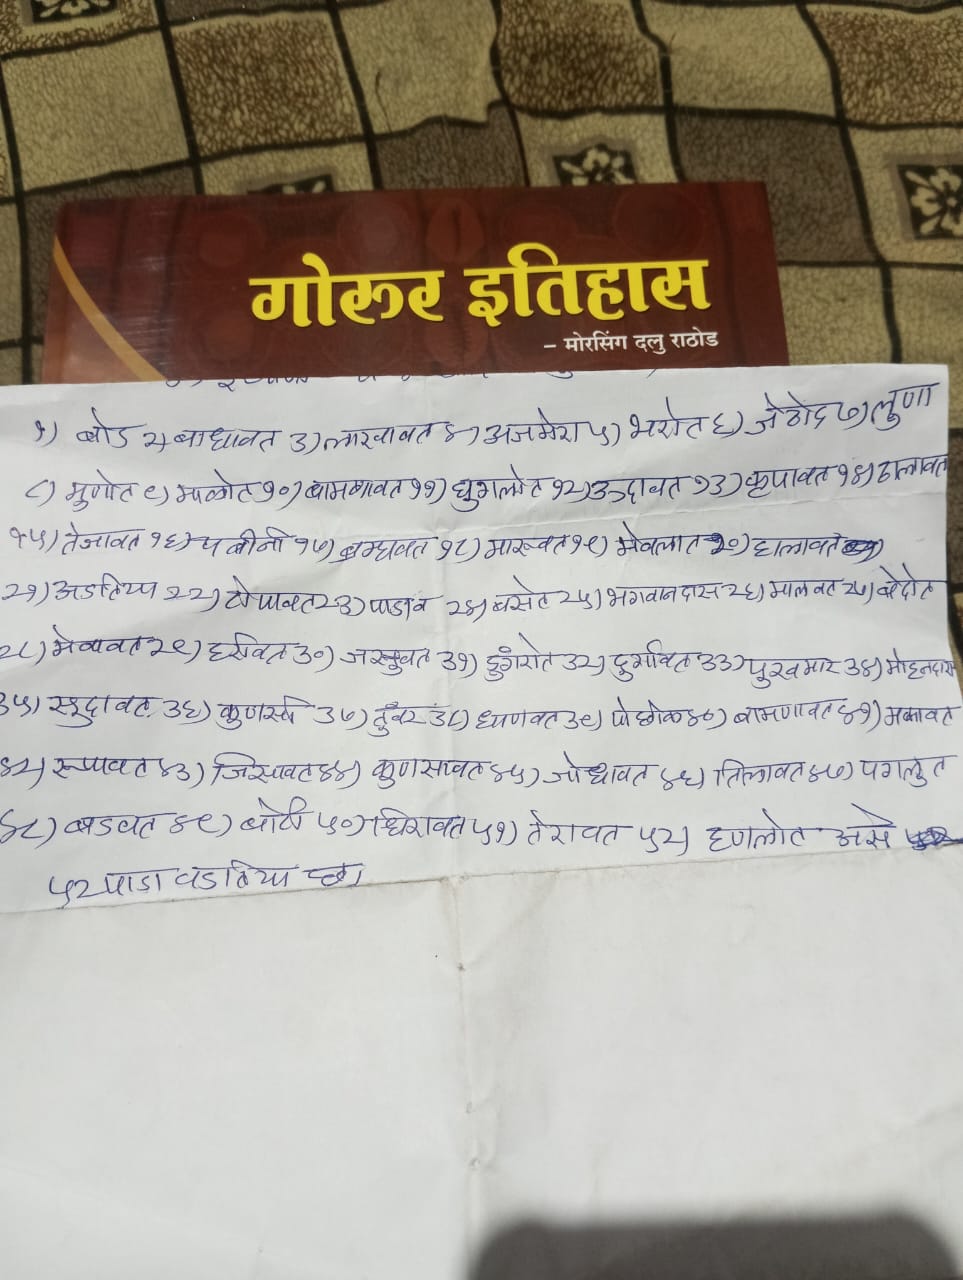 गोरूर इतिहास
- मोरसिंग दलु राठोड
१) बोड २) बाधावत ३) लाखावत ४) अजमेरा ५) भरोत ६) जेठोद ७) लुणा
८) मुणोत ९) मालोत १०) बामणावत ११) घुगलोत १२) उदावत १३) कृपावत १४) ठालावत
१५) तेजावत १६) १७) ब्रम्हावत १८) मारूवत १९) मेघलात २०) हालावत
२१) अडतिया २२) टोपावत २३) पाडाव २४) बसेत २५) भगवानदास २६) मालवत २७) बेदोत
२८) मेघावत २९) हरावत ३०) जस्नुवत ३१) डुंगरोत ३२) दुर्गावत ३३) पुरखमार ३४) मोहनदास
३५) रूदावत ३६) कुणसी ३७) तुंवर ३८) ध्यणवत ३९) ४०) बामणावत ४१) मकावत
४२) रूपावत ४३) जिसावत ४४) कुणसावत ४५) जोधावत ४६) तिलावत ४७) पगलुत
४८) बडवत ४९) बोटी ५०) धिरावत ५१) तेरावत ५२) हणलोत असे
५२ पाडा वडतिया छ।